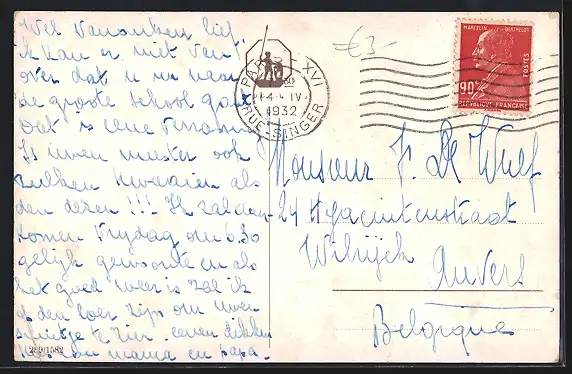 Wel Vansuiken lief.
Ik kan er niet van
over dat u nu naar
de groote school gaat
dat is eene
Is uwen meester ook
zulken als
den dezen !!! Ik zal dan
komen Vrydag om 6.30
gelijk gewoonte en als
het goed weer is zal ik
op den boer zijn om uwen
te zien. eenen dikken
kus van mama en papa.
28/9/1582
€3-
PARIS XVI
4 - IV
1932
RUE SINGER
MARCELIN BERTHELOT
POSTES
90c
REPUBLIQUE FRANÇAISE
Monsieur J. De Wulf
24 Hyacintenstraat
Wilrijck
Anvers
Belgique